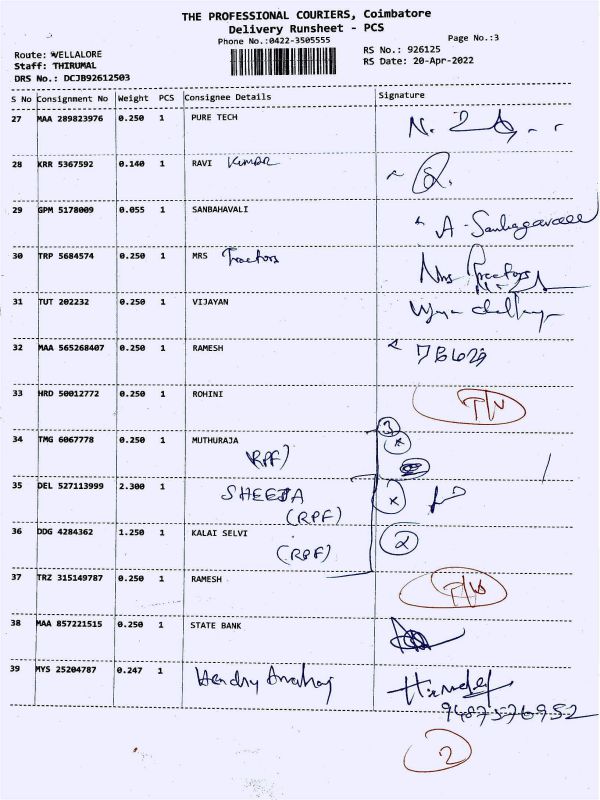 THE PROFESSIONAL COURIERS, Coimbatore
Delivery Runsheet - PCS
Phone No.:0422-3505555
Page No.:3
Route: VELLALORE
RS No.: 926125
Staff: THIRUMAL
RS Date: 20-Apr-2022
DRS No.: DCJB92612503
S No Consignment No Weight PCS Consignee Details Signature
27 MAA 289823976 0.250 1 PURE TECH
28 KRR 5367592 0.140 1 RAVI Kumar
29 GPM 5178009 0.055 1 SANBAHAVALI A.
30 TRP 5684574 0.250 1 MRS Tractors Mrs Tractors
31 TUT 202232 0.250 1 VIJAYAN
32 MAA 565268407 0.250 1 RAMESH
33 HRD 50012772 0.250 1 ROHINI
34 TMG 6067778 0.250 1 MUTHURAJA 3
(RPF)
35 DEL 527113999 2.300 1 SHEEJA x
(RPF)
36 DDG 4284362 1.250 1 KALAI SELVI 2
(RPF)
37 TRZ 315149787 0.250 1 RAMESH
38 MAA 857221515 0.250 1 STATE BANK
39 MYS 25204787 0.247 1 Hendry
2